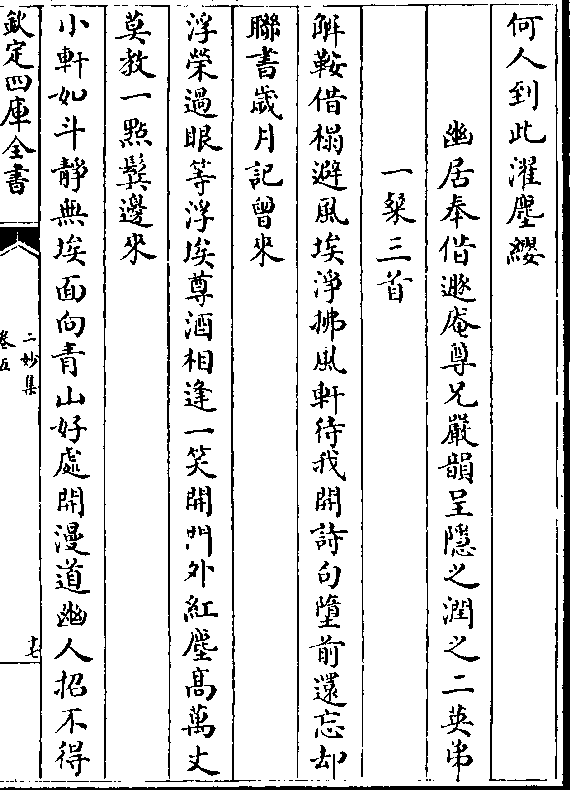 何人到此濯塵纓
幽居奉偕遯庵尊兄嚴韻呈隱之潤之二英弟
一粲三首
解鞍借榻避風埃淨拂風軒待我開詩句墮前還忘却
聯書歲月記曾來
浮榮過眼等浮埃尊酒相逢一笑開門外紅塵髙萬丈
莫教一點鬂邊來
小軒如斗靜無埃面向青山好處開漫道幽人招不得
欽定四庫全書
二妙集
卷五
十七